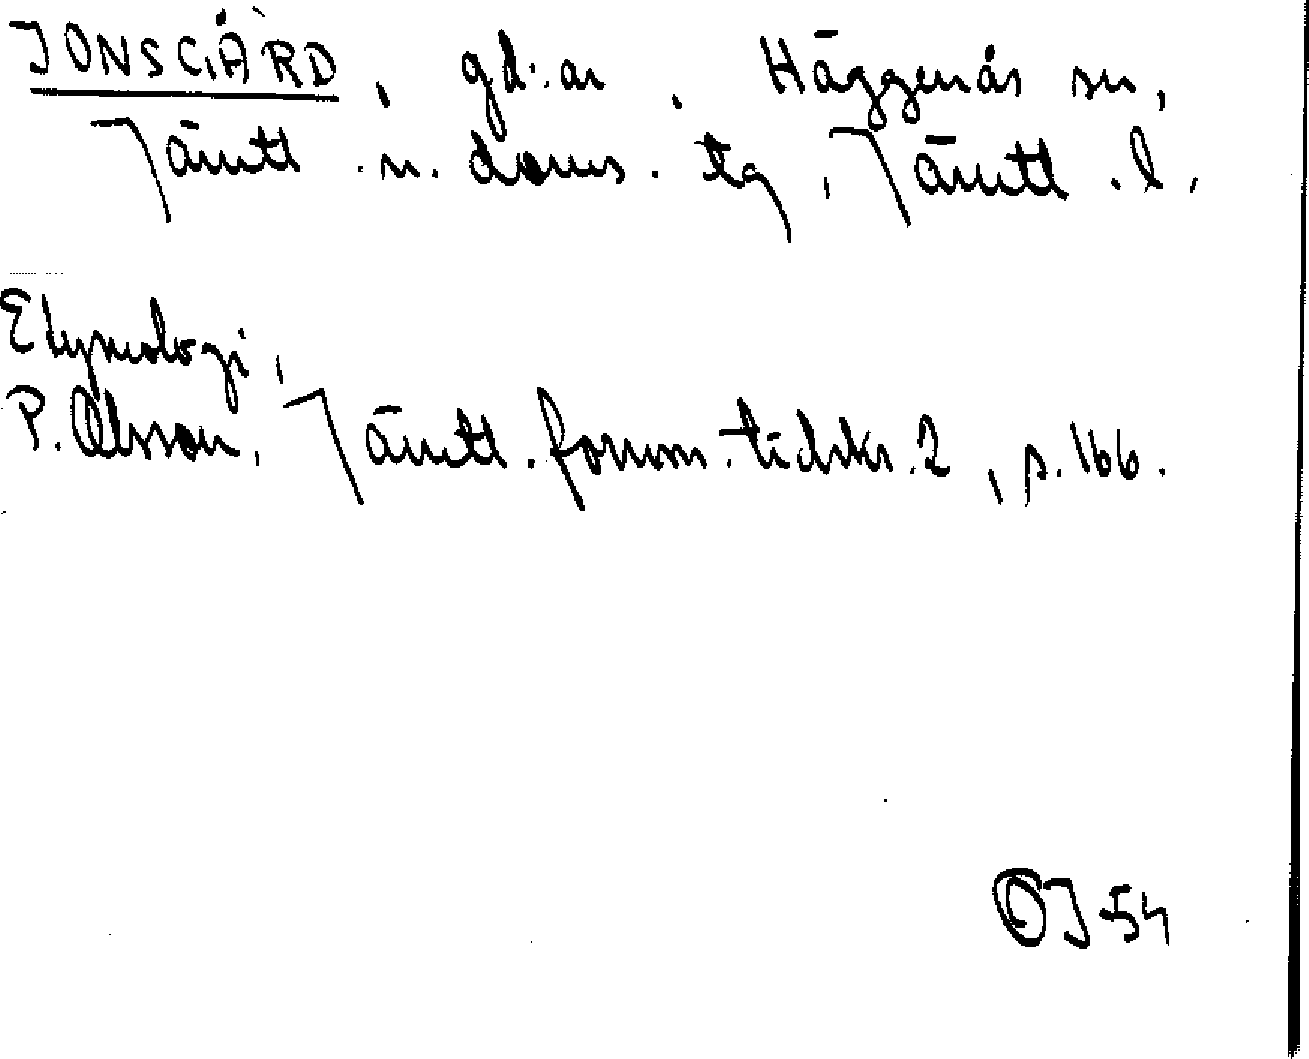 JONSGÅRD, gd:ar. Häggenås sn,
Jämtl. n. doms. tg, Jämtl. l.
Etymologi,
P. Olsson, Jämtl. fornm. tidskr. 2, s. 166.
OJ 54